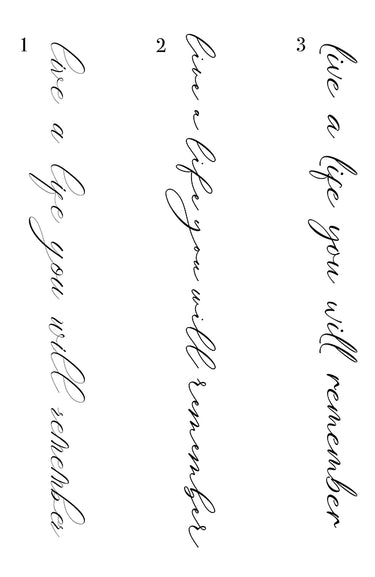 1
live a life you will remember
2
live a life you will remember
3
live a life you will remember